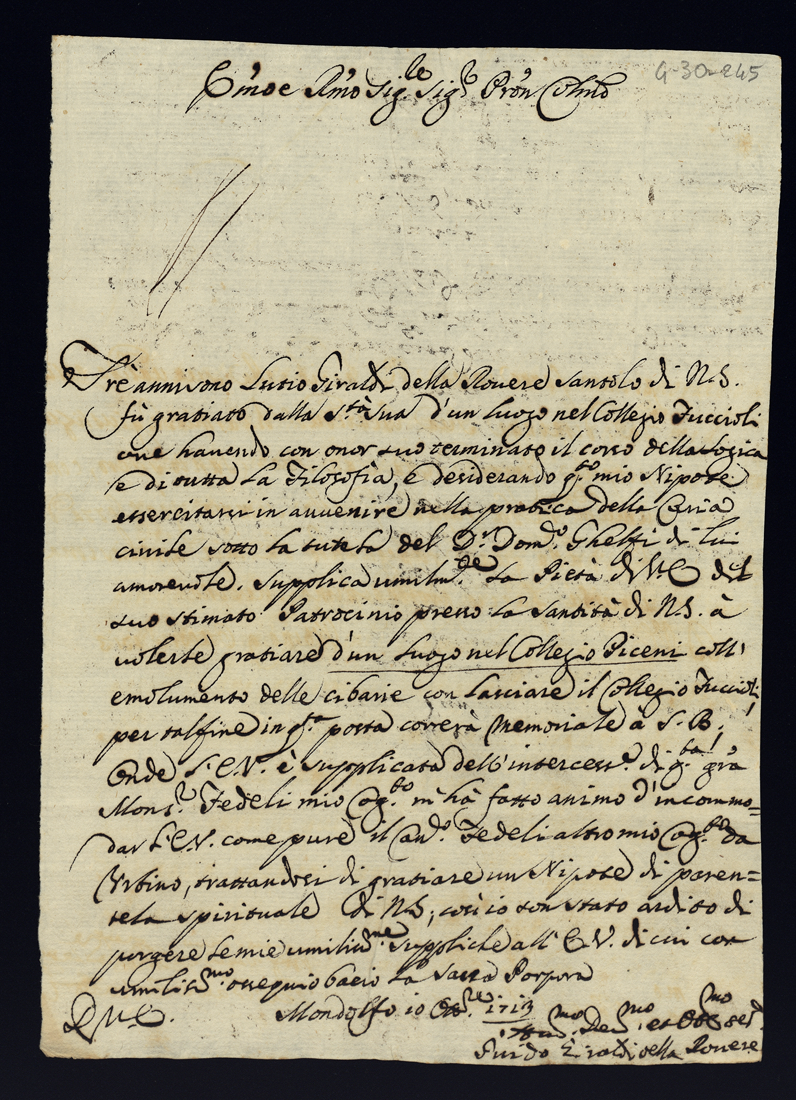 4-30-245
Em̃o e Rm̃o Sig.re Sig.r Prõn Colm̃o
Trè anni sono Lutio Giraldi della Rovere Santolo di N.S.
fù gratiato dalla S.tà Sua d'un luogo nel Collegio Fuccioli
oue hauendo con onor suo terminato il corso della Logica
e di tutta la Filosofia, e desiderando q.to mio Nipote
essercitarsi in avvenire nella pratica della Curia
civile sotto la tutela del D.r Dom.o Ghelfi di lui
amorevole, supplica umilm.te la Pietà di V.E. del
suo stimato Patrocinio presso la Santità di N.S. à
volerlo gratiare d'un Luogo nel Collegio Piceni coll'
emolumento delle cibarie con lasciare il Collegio Fuccioli,
per tal fine in q.ta posta correrà Memoriale à S. B.,
Onde l'E.V. è supplicata dell'intercess.e di q.ta grã
Mons.r Fedeli mio Cog.to m'hà fatto animo d'incommo=
dar l'E.V. come pure il Can.o Fedeli altro mio Cog.to da
Urbino, trattandosi di gratiare un Nipote di paren=
tela spirituale di N.S., così io son stato ardito di
porgere le mie umiliss.me suppliche all'E.V. di cui con
umiliss.mo ossequio bacio la Sacra Porpora
D.V.E. Mondolfo 10 Ott.re 1713
Um.mo Dev.mo et Obb.mo Ser.
Guido Giraldi della Rovere